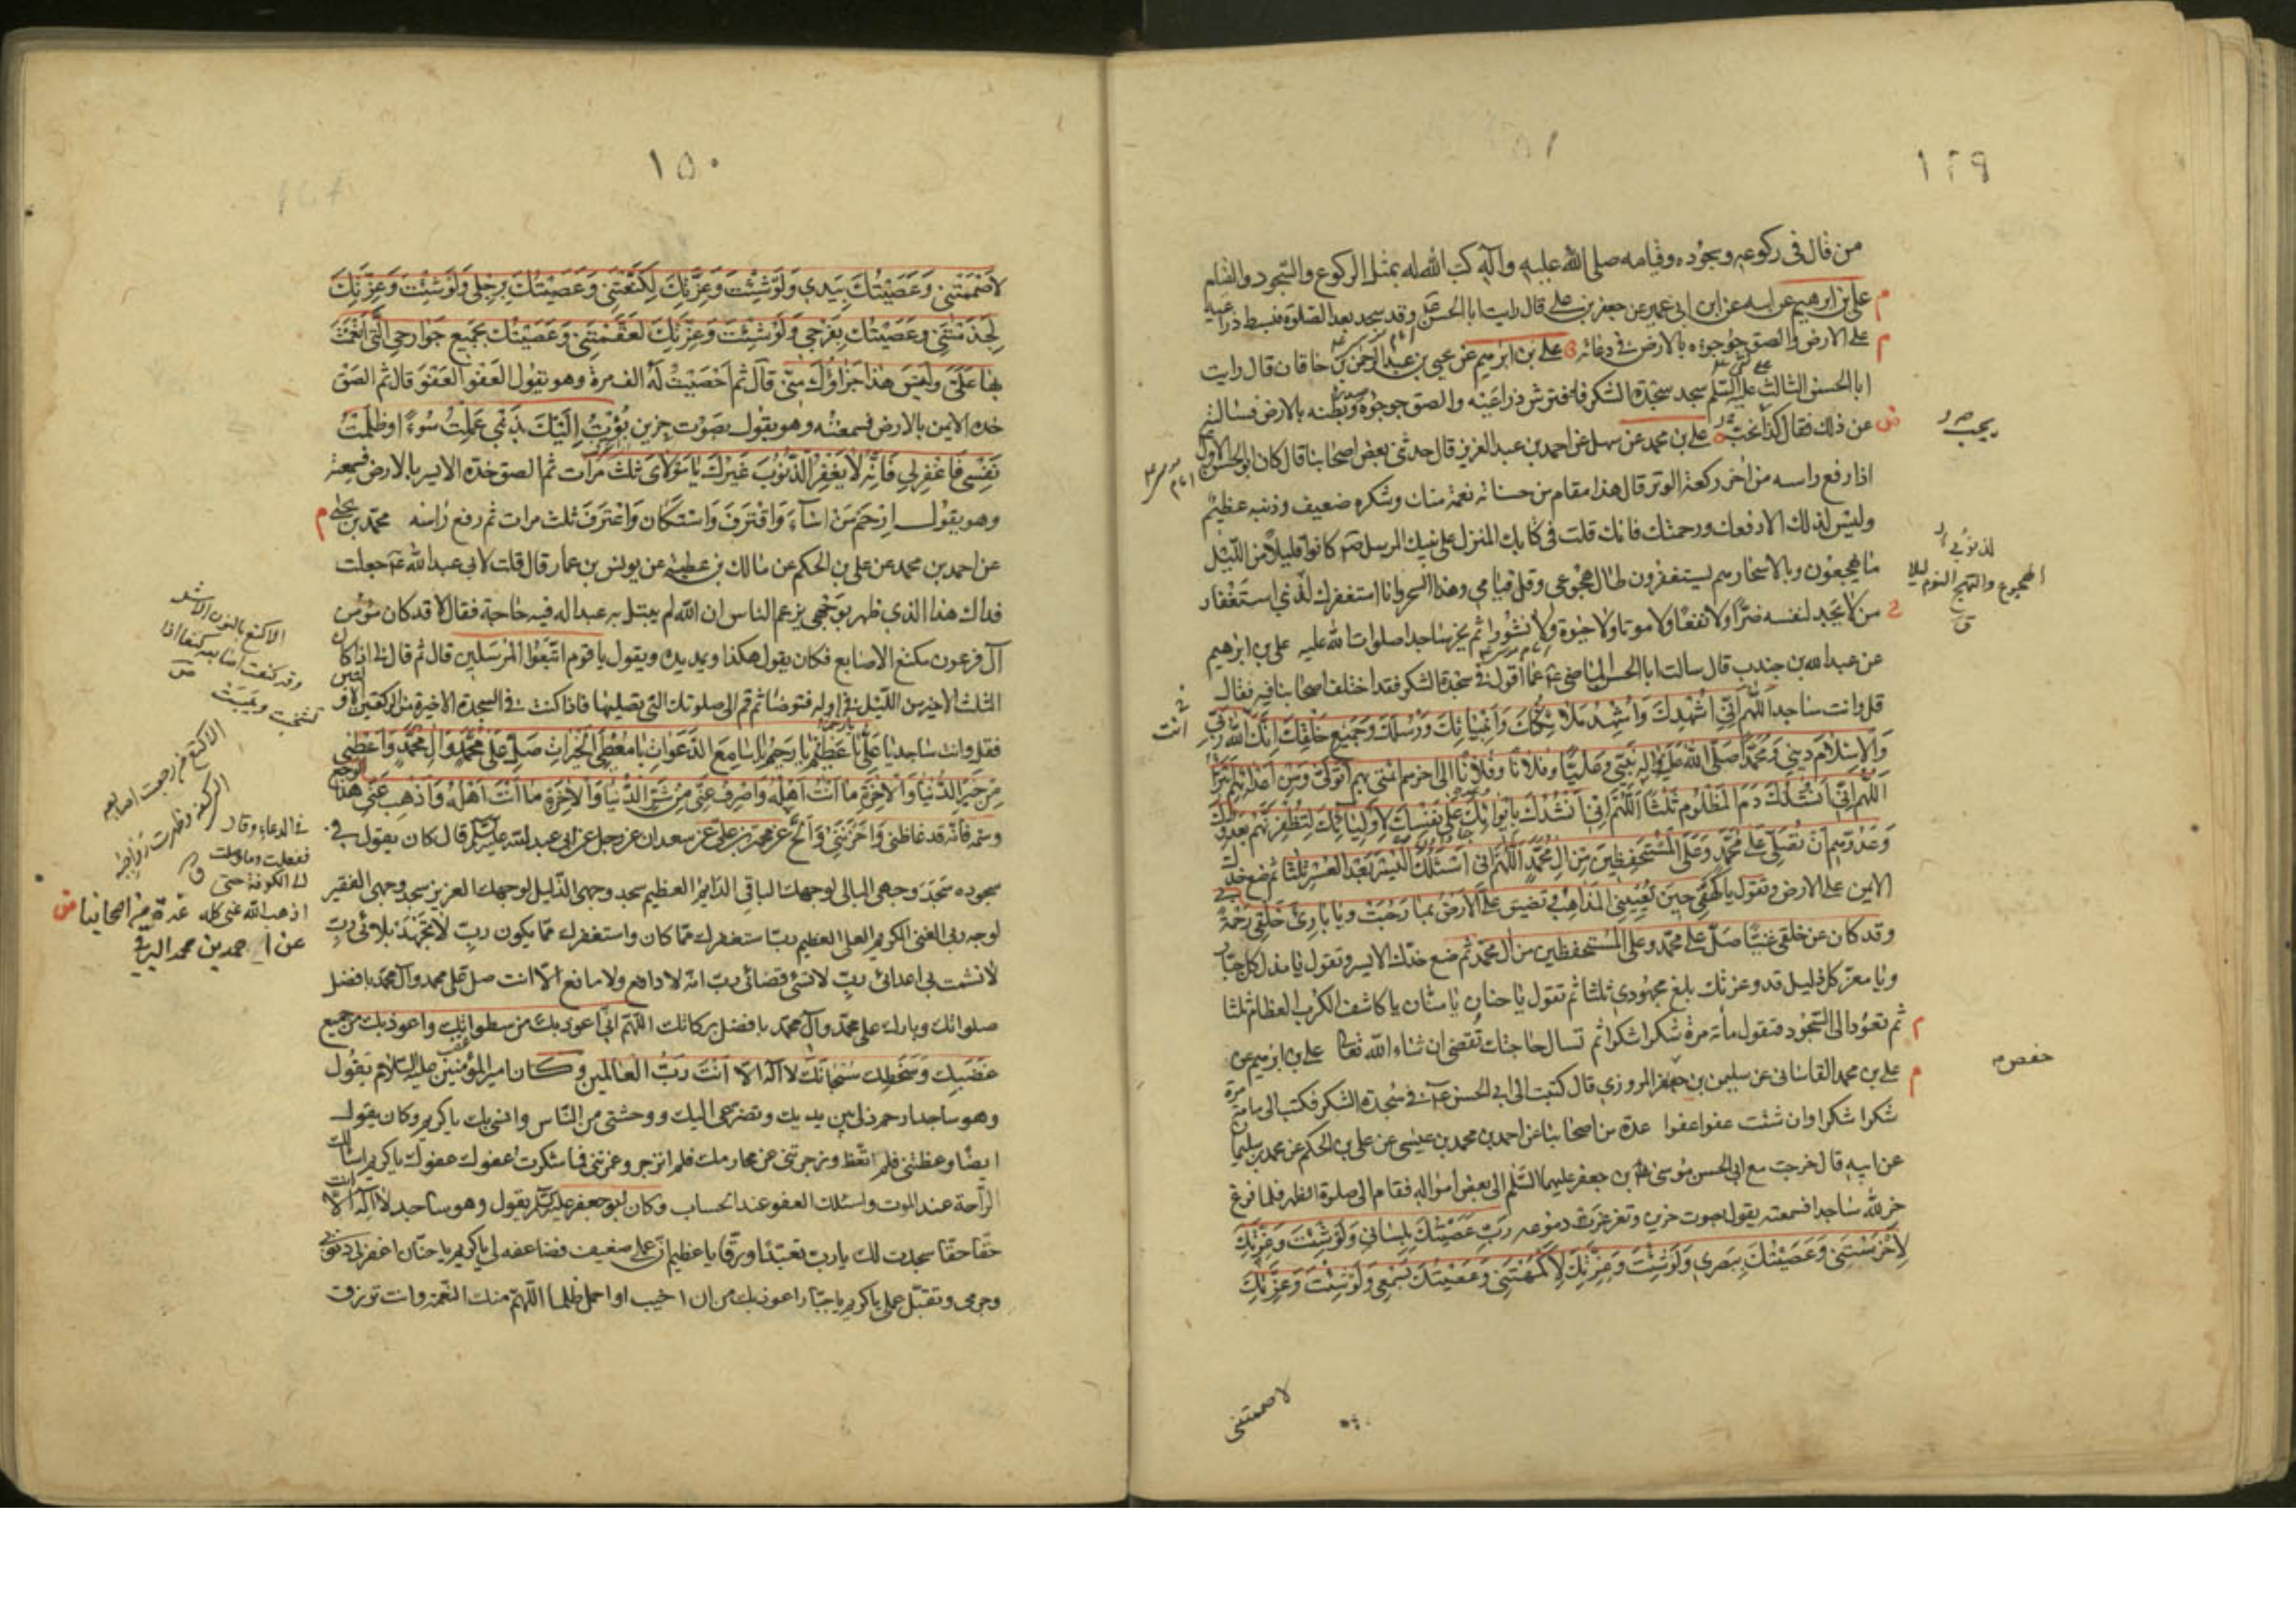 ١٤٩
من قال فى ركوعه وسجوده وقيامه صلى الله عليه وآله كتب الله له بمثل الركوع والسجود والقيام
على بن ابرهيم عن ابيه عن ابن ابى عمير عن جعفر بن على قال رايت ابا الحسن وقد سجد بعد الصلوة فبسط ذراعيه
على الارض والصق جؤجؤه بالارض فى دعائه على بن ابرهيم عن يحيى بن عبد الرحمن بن خاقان قال رايت
ابا الحسن الثالث عليه السلم سجد سجدة الشكر فافترش ذراعيه والصق جؤجؤه وبطنه بالارض فسالته
عن ذلك فقال كذا نحب على بن محمد عن سهل عن احمد بن عبد العزيز قال حدثنى بعض اصحابنا قال كان ابو الحسن الاول
اذا رفع راسه من اخر ركعة الوتر قال هذا مقام من حسناته نعمة منك وشكره ضعيف وذنبه عظيم
وليس لذلك الا رفعك ورحمتك فانك قلت فى كتابك المنزل على نبيك المرسل كانوا قليلا من الليل
ما يهجعون وبالاسحار هم يستغفرون طال هجوعى وقل قيامى وهذا السحر وانا استغفرك لذنبى استغفار
من لا يجد لنفسه ضرا ولا نفعا ولا موتا ولا حيوة ولا نشورا ثم يخر ساجدا صلوات الله عليه على بن ابرهيم
عن عبد الله بن جندب قال سالت ابا الحسن الماضى عما اقول فى سجدة الشكر فقد اختلف اصحابنا فيه فقال
قل وانت ساجد اللهم انى اشهدك واشهد ملائكتك وانبيائك ورسلك وجميع خلقك انك الله ربى
والاسلام دينى ومحمدا صلى الله عليه واله نبيى وعليا وفلانا وفلانا الى اخرهم ائمتى بهم اتولى ومن اعدائهم اتبرأ
اللهم انى انشدك دم المظلوم ثلثا اللهم انى انشدك بايوائك على نفسك لاوليائك لتظفرنهم بعدوك
وعدوهم ان تصلى على محمد وعلى المستحفظين من ال محمد اللهم انى اسئلك اليسر بعد العسر ثلثا ثم ضع خدك
الايمن على الارض وتقول يا كهفى حين تعيينى المذاهب وتضيق على الارض بما رحبت ويا بارئ خلقى رحمة بى
وقد كان عن خلقى غنيا صل على محمد وعلى المستحفظين من ال محمد ثم ضع خدك الايسر وتقول يا مذل كل جبار
ويا معز كل ذليل قد وعزتك بلغ مجهودى ثلثا ثم تقول يا حنان يا منان يا كاشف الكرب العظام ثلثا
ثم تعود الى السجود فتقول مأة مرة شكرا شكرا ثم تسال حاجتك تقضى ان شاء الله تعالى على بن ابرهيم عن
على بن محمد القاسانى عن سليمن بن حفص المروزى قال كتبت الى ابى الحسن فى سجدة الشكر فكتب الى مائة مرة
شكرا شكرا وان شئت عفوا عفوا عدة من اصحابنا عن احمد بن محمد بن عيسى عن على بن الحكم عن محمد بن سليمان
عن ابيه قال خرجت مع ابى الحسن موسى بن جعفر عليهما السلم الى بعض امواله فقام الى صلوة الظهر فلما فرغ
خر لله ساجدا فسمعته يقول بصوت حزين وتغرغرت دموعه رب عصيتك بلسانى ولو شئت وعزتك
لاخرستنى وعصيتك ببصرى ولو شئت وعزتك لاكمهتنى وعصيتك بسمعى ولو شئت وعزتك
لاصممتنى
يحب
الهجوع والتهجاع النوم ليلا
ق
انت
حفص
١٥٠
لاصممتنى وعصيتك بيدى ولو شئت وعزتك لكنعتنى وعصيتك برجلى ولو شئت وعزتك
لجذمتنى وعصيتك بفرجى ولو شئت وعزتك لعقمتنى وعصيتك بجميع جوارحى التى انعمت
بها على وليس هذا جزاؤك منى قال ثم احصيت له الف مرة وهو يقول العفو العفو قال ثم الصق
خده الايمن بالارض فسمعته وهو يقول بصوت حزين بؤت اليك بذنبى عملت سوءا وظلمت
نفسى فاغفر لى فانه لا يغفر الذنوب غيرك يا مولاى ثلث مرات ثم الصق خده الايسر بالارض فسمعته
وهو يقول ارحم من اساء واقترف واستكان واعترف ثلث مرات ثم رفع راسه محمد بن يحيى
عن احمد بن محمد عن على بن الحكم عن مالك بن عطية عن يونس بن عمار قال قلت لابى عبد الله جعلت
فداك هذا الذى ظهر بوجهى يزعم الناس ان الله لم يبتل به عبدا له فيه حاجة فقال لا قد كان مؤمن
آل فرعون مكنع الاصابع فكان يقول هكذا ويمد يده ويقول يا قوم اتبعوا المرسلين قال ثم قال لى اذا كان
الثلث الاخير من الليل فى اوله فتوضأ ثم قم الى صلوتك التى تصليها فاذا كنت فى السجدة الاخيرة من الركعتين الاوليين
فقل وانت ساجد يا على يا عظيم يا رحمن يا رحيم يا سامع الدعوات يا معطى الخيرات صل على محمد وال محمد واعطنى
من خير الدنيا والاخرة ما انت اهله واصرف عنى من شر الدنيا والاخرة ما انت اهله واذهب عنى هذا الوجع
وسمه فانه قد غاظنى واحزننى والح عن محمد بن على عن سعدان عن رجل عن ابى عبد الله عليه السلم قال كان يقول فى
سجوده سجد وجهى البالى لوجهك الباقى الدايم العظيم سجد وجهى الذليل لوجهك العزيز سجد وجهى الفقير
لوجه ربى الغنى الكريم العلى العظيم رب استغفرك مما كان واستغفرك مما يكون رب لا تجهد بلائى رب
لا تشمت بى اعدائى رب لا تسئ قضائى رب انه لا دافع ولا مانع الا انت صل على محمد وآل محمد بافضل
صلواتك وبارك على محمد وآل محمد بافضل بركاتك اللهم انى اعوذ بك من سطواتك واعوذ بك من جميع
غضبك وسخطك سبحانك لا اله الا انت رب العالمين وكان امير المؤمنين عليه السلام يقول
وهو ساجد ارحم ذلى بين يديك وتضرعى اليك ووحشتى من الناس وانسى بك يا كريم وكان يقول
ايضا وعظتنى فلم اتعظ وزجرتنى عن محارمك فلم انزجر وعمرتنى فما شكرت عفوك عفوك يا كريم اسالك
الراحة عند الموت واسئلك العفو عند الحساب وكان ابو جعفر عليه السلم يقول وهو ساجد لا اله الا انت
حقا حقا سجدت لك يا رب تعبدا ورقا يا عظيم ان عملى ضعيف فضاعفه لى يا كريم يا حنان اغفر لى ذنوبى
وجرمى وتقبل عملى يا كريم يا جبار اعوذ بك من ان اخيب او احمل ظلما اللهم منك النعمة وانت ترزق
الاكنع بالنون الاشل
وقد كنعت اصابعه كنعا اذا
تشنجت ويبست
الاكنع من رجعت اصابعه
الى كفه وظهرت رواجبه
ق
فى الدعاء وقال
ففعلت وما وصلت
الى الكوفة حتى
اذهب الله عنى كله عدة من اصحابنا
عن احمد بن محمد البرقى